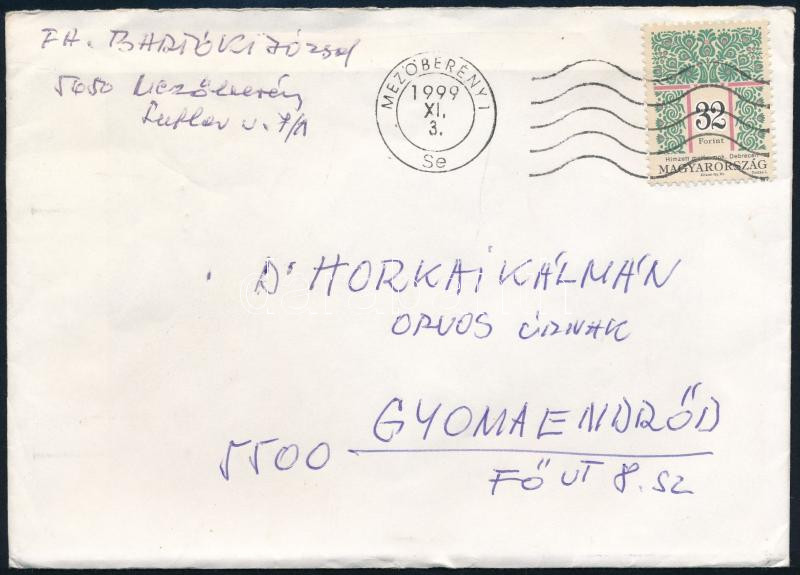 FA. BARTÓKI József
5650 Mezőberény
u. 7/A
MEZŐBERÉNY 1
1999
XI.
3.
Se
32
Forint
Debrecen
MAGYARORSZÁG
Dr HORKAI KÁLMÁN
ORVOS ÚRNAK
GYOMAENDRŐD
5500
FŐ UT 8. SZ